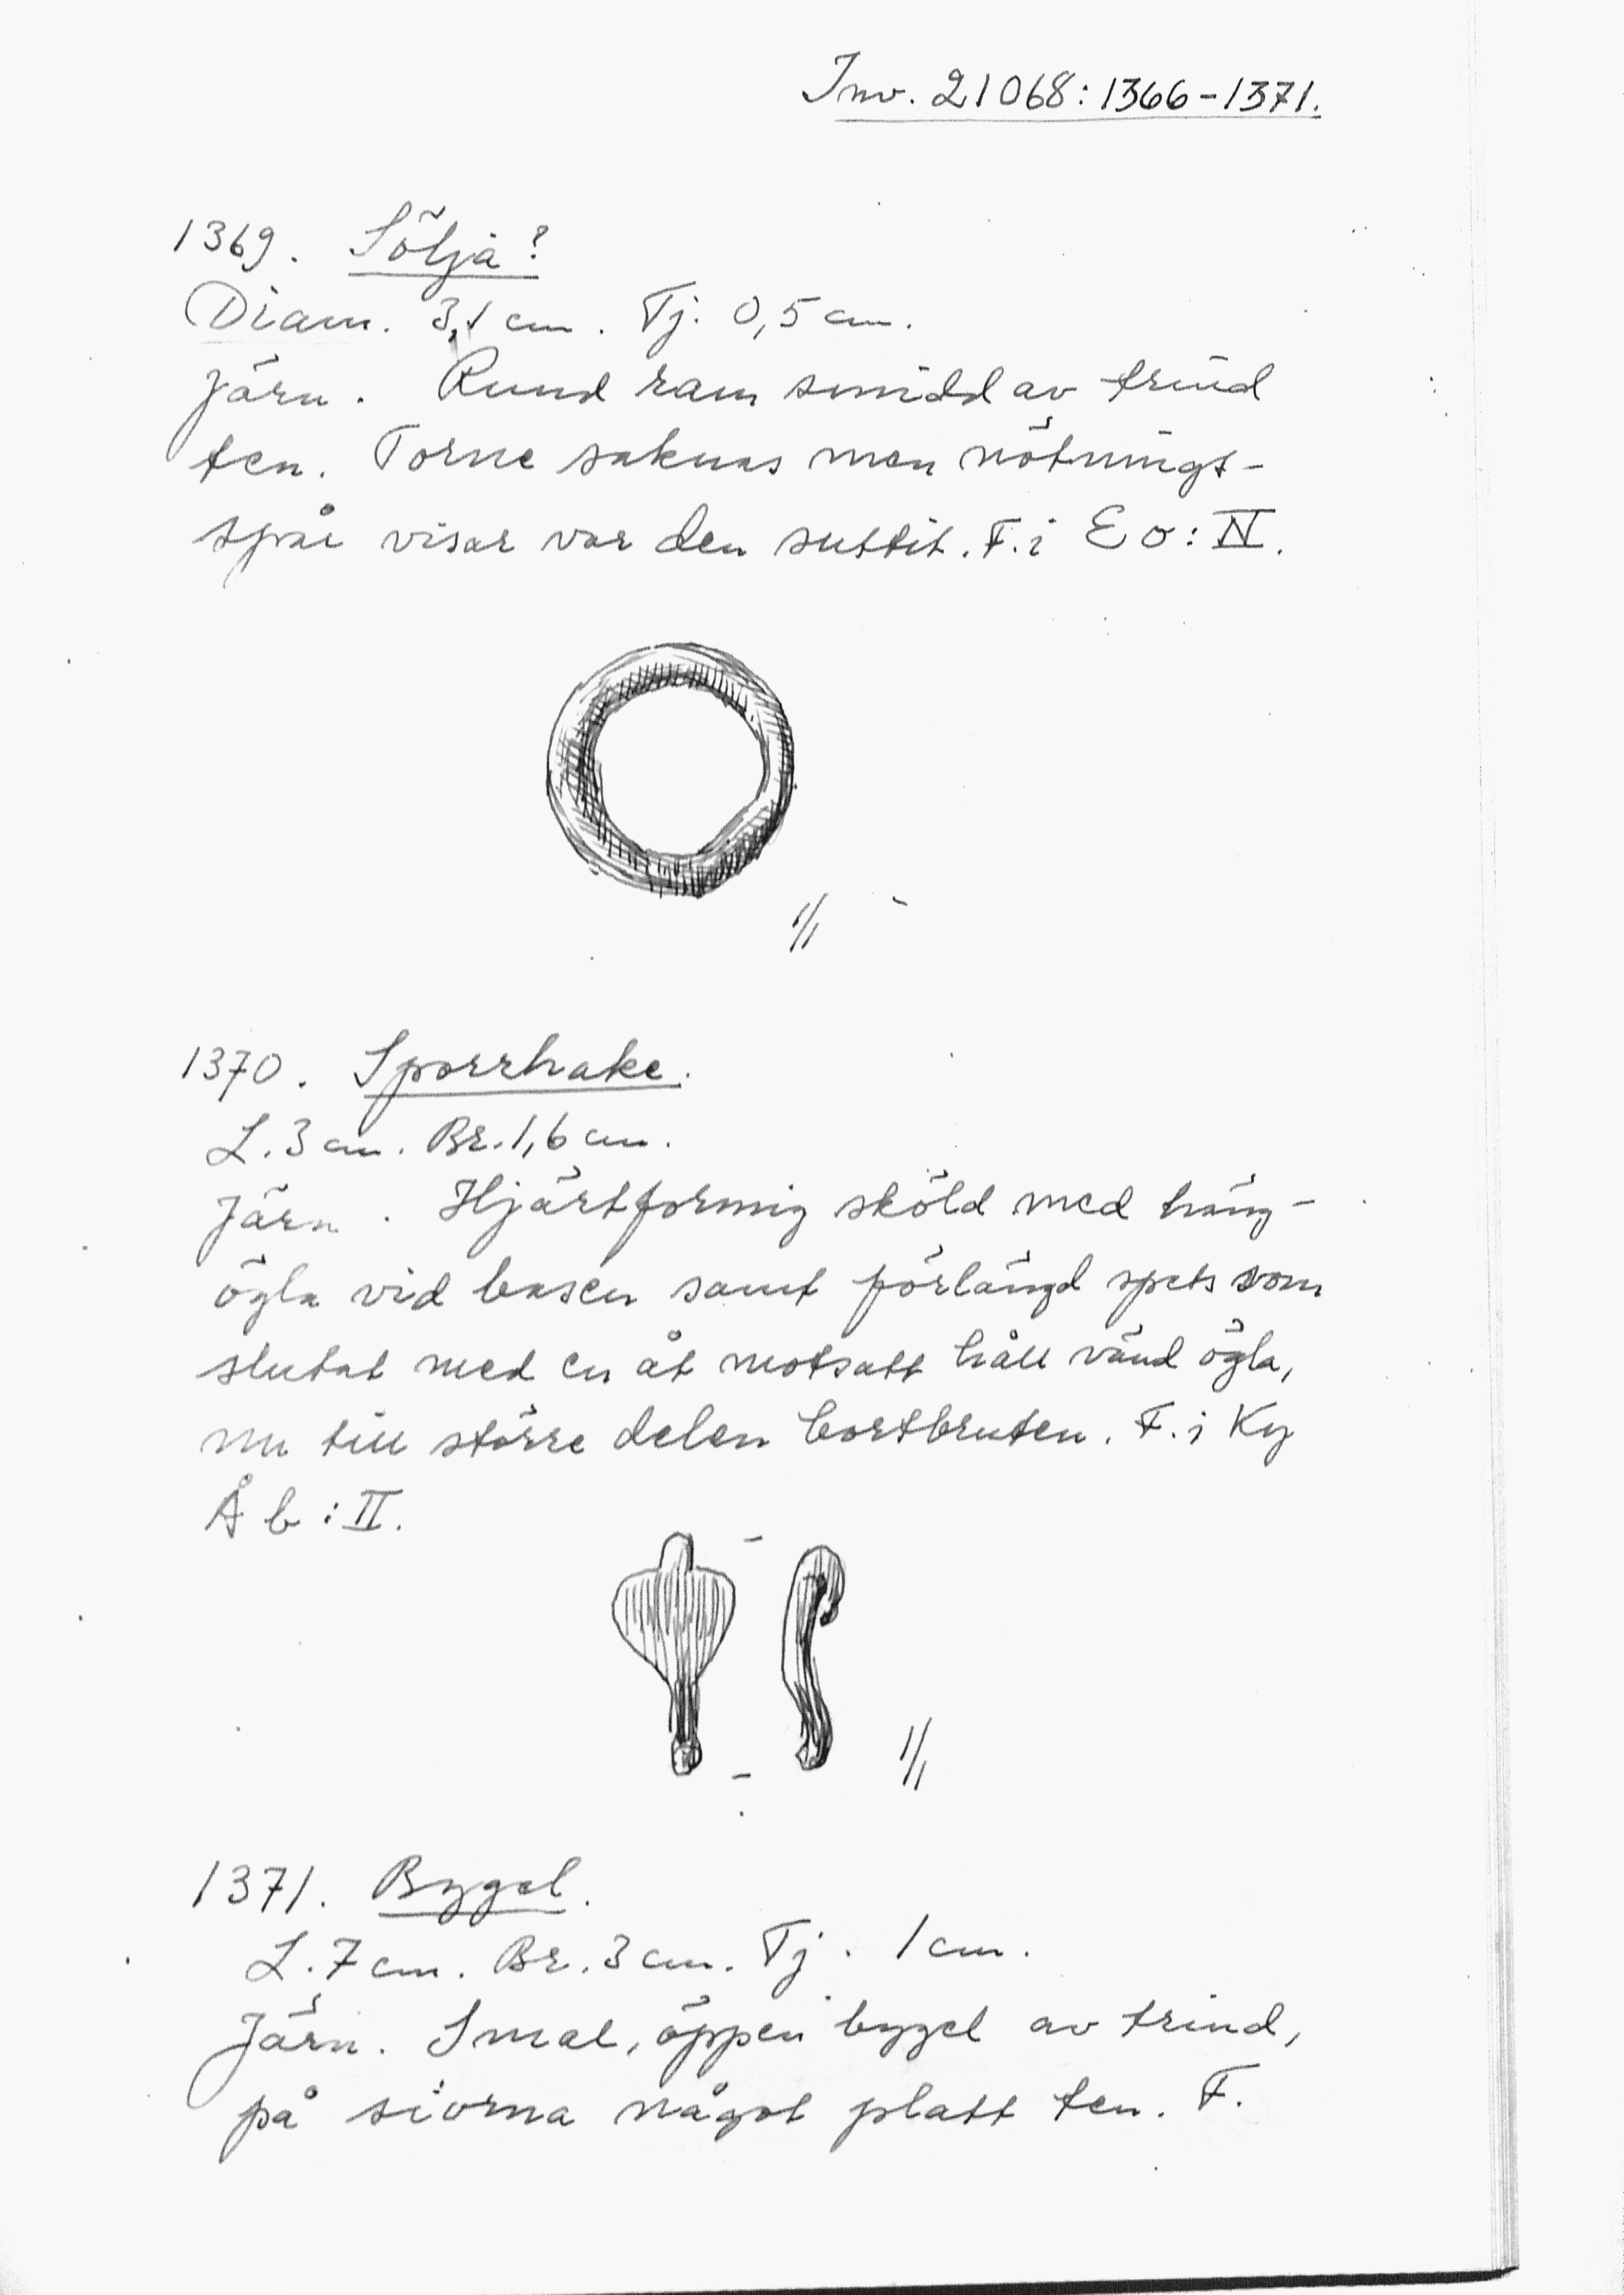 Inv. 21068:1366-1371.
1369. Sölja?
Diam. 3,1 cm. Tj. 0,5 cm.
Järn. Rund ram smidd av trind
ten. Torne saknas men nötnings-
spår visar var den suttit. F. i E o: IV.
1/1
1370. Sporrhake.
L. 3 cm. Br. 1,6 cm.
Järn. Hjärtformig sköld med häng-
ögla vid basen samt förlängd spets som
slutat med en åt motsatt håll vänd ögla,
nu till större delen bortbruten. F. i Ky
Å b: II.
1/1
1371. Bygel.
L. 7 cm. Br. 3 cm. Tj. 1 cm.
Järn. Smal, öppen bygel av trind,
på sidorna något platt ten. F.